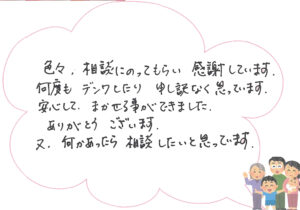 色々、相談にのってもらい 感謝しています.
何度も デンワしたり 申し訳なく思っています.
安心して、まかせる事ができました.
ありがとう ございます.
又、何かあったら 相談したいと思っています.